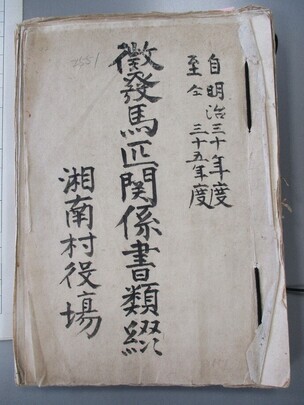 自明治三十年度
至仝三十五年度
徴發馬匹関係書類綴
湘南村役場